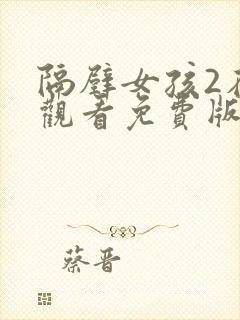 隔壁女孩2
觀看免費版
蔡晋